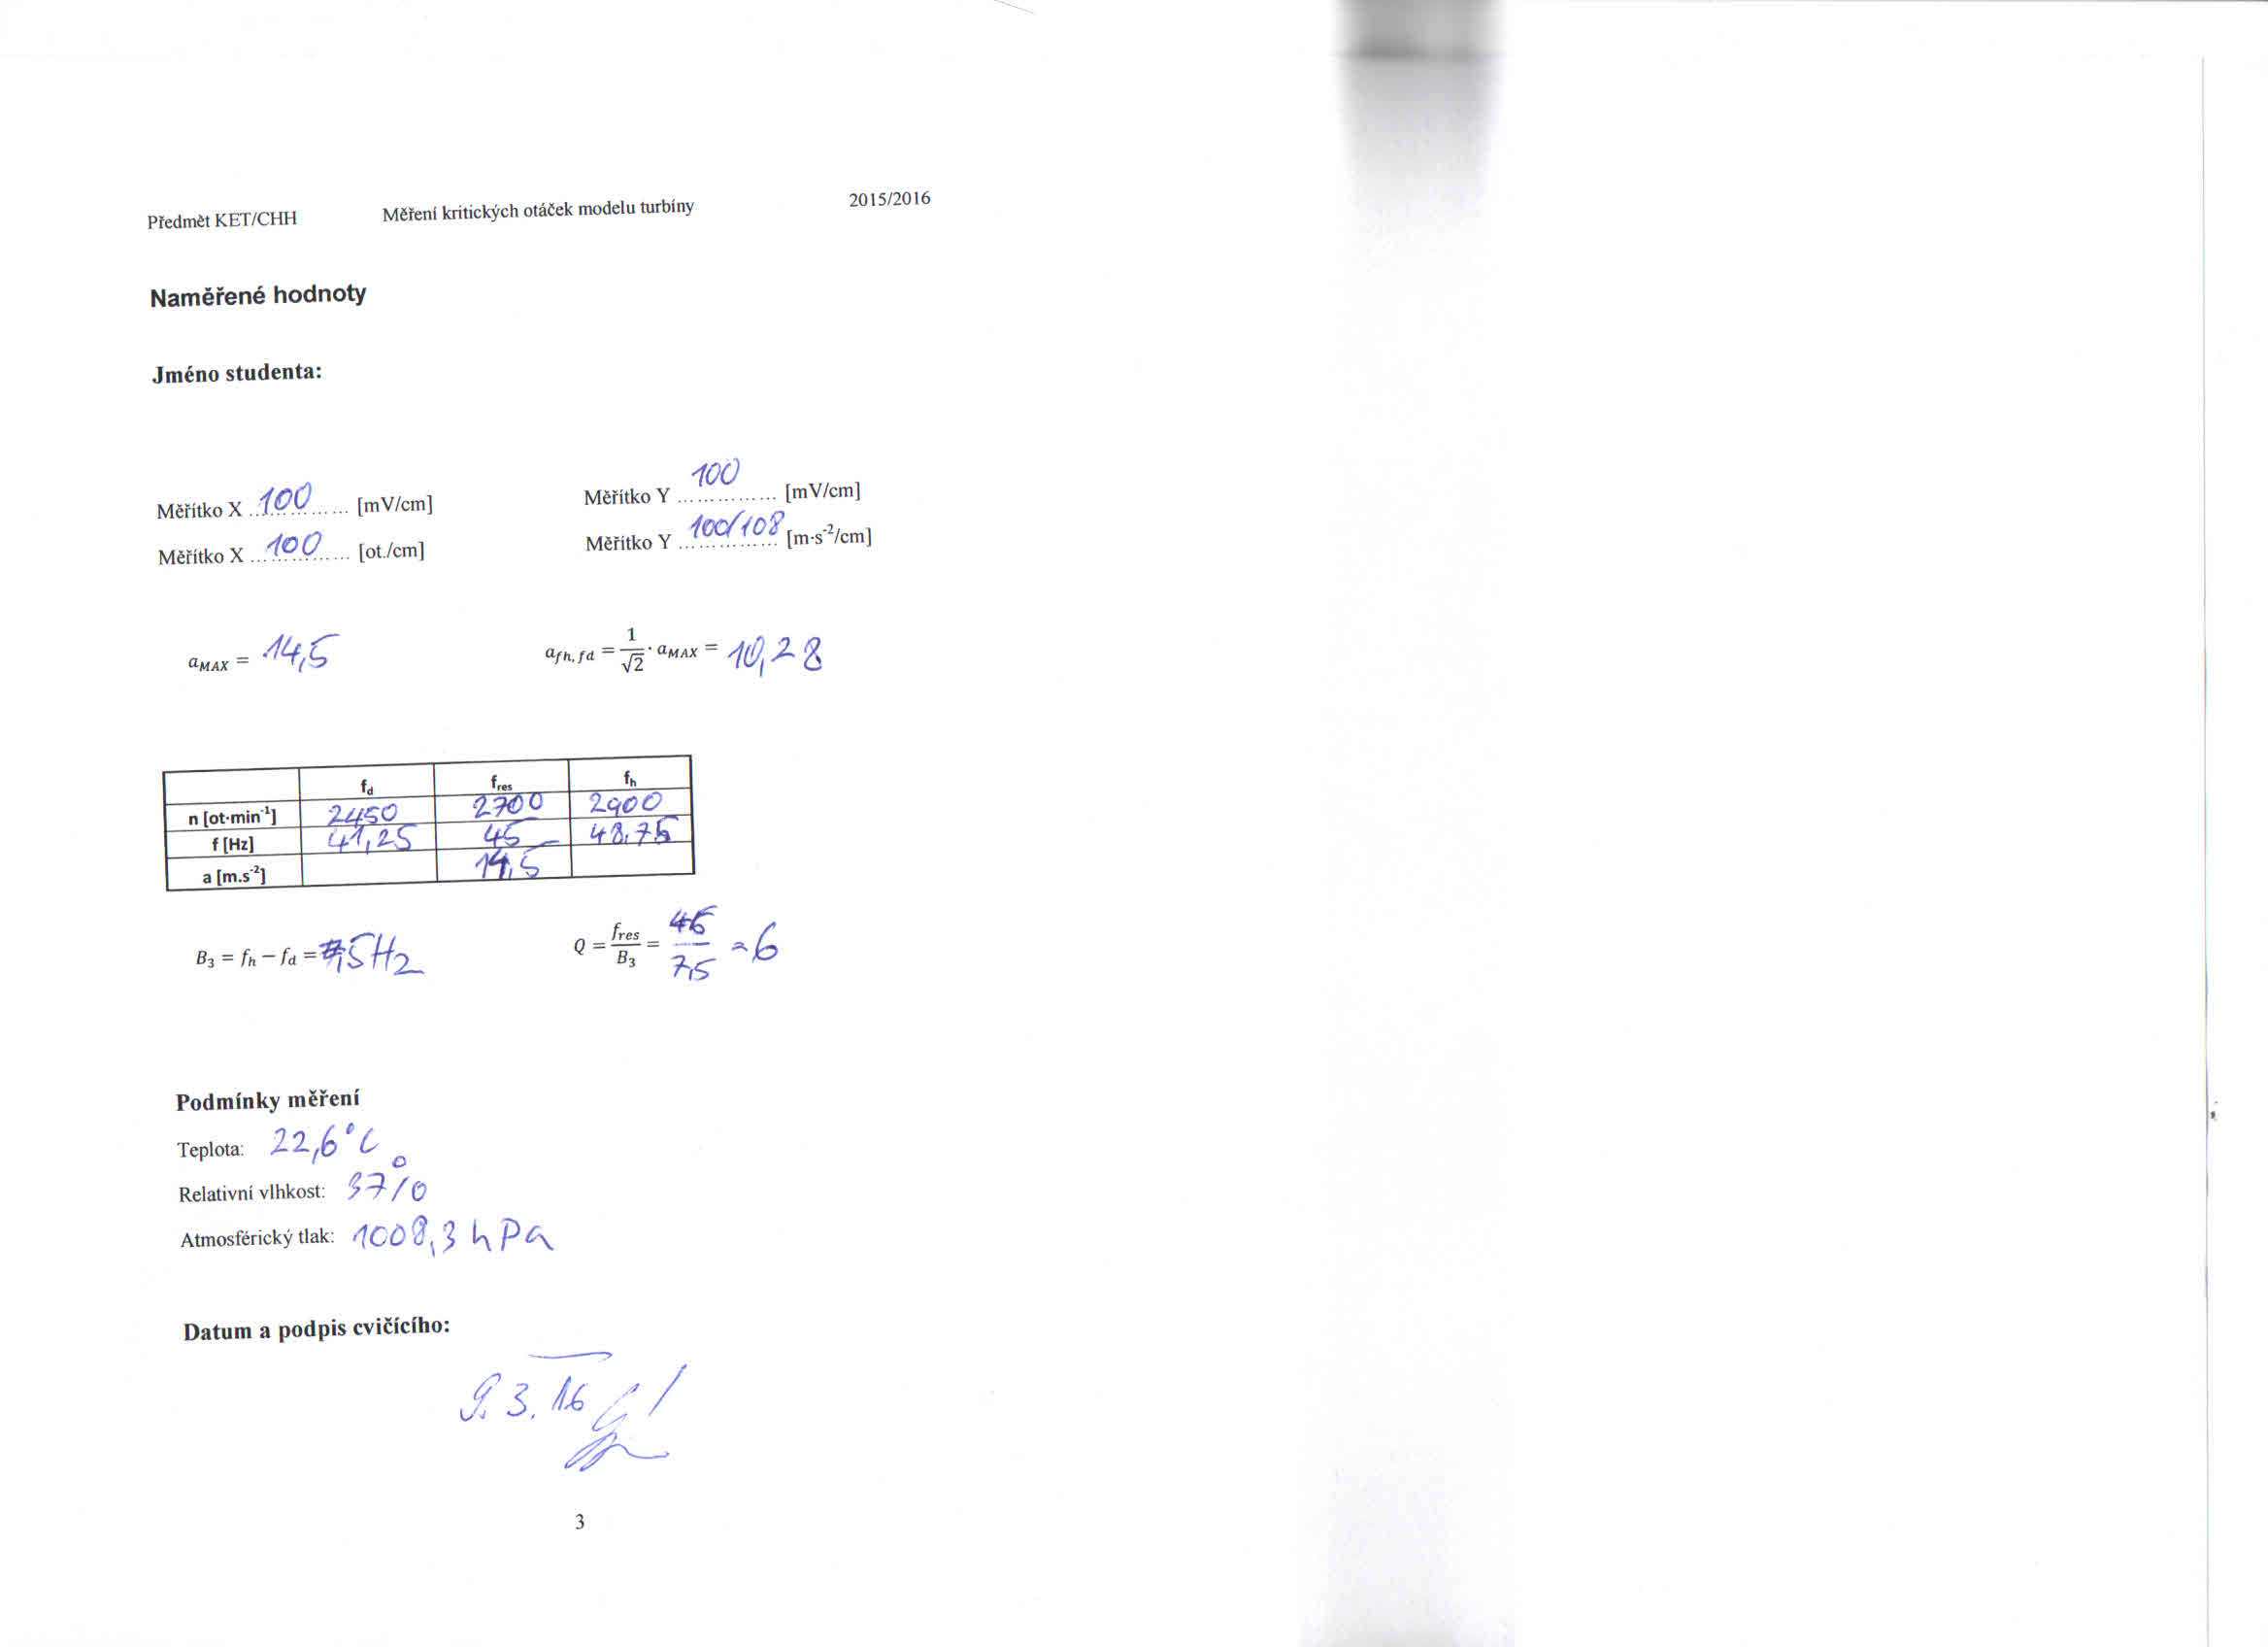 Předmět KET/CHH Měření kritických otáček modelu turbíny 2015/2016
Naměřené hodnoty
Jméno studenta:
Měřítko X ...100... [mV/cm] Měřítko Y ...100... [mV/cm]
Měřítko X ...100... [ot./cm] Měřítko Y ...100/108... [m·s⁻²/cm]
a_MAX = 14,5 a_fh,fd = 1/√2 · a_MAX = 10,28
f_d f_res f_h
n [ot·min⁻¹] 2450 2700 2900
f [Hz] 41,25 45 48,75
a [m.s⁻²] 14,5
B₃ = f_h − f_d = 7,5Hz Q = f_res/B₃ = 45/7,5 = 6
Podmínky měření
Teplota: 22,6°C
Relativní vlhkost: 37%
Atmosférický tlak: 1008,3 hPa
Datum a podpis cvičícího:
9. 3. 16
3